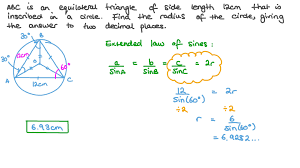 ABC is an equilateral triangle of side length 12cm that is
inscribed in a circle. Find the radius of the circle, giving
the answer to two decimal places.
Extended law of sines:
a/sinA = b/sinB = c/sinC = 2r
B
30°
12cm
60°
30°
A
C
12cm
12/sin(60°) = 2r
÷2 ÷2
r = 6/sin(60°)
= 6.9282...
6.93cm